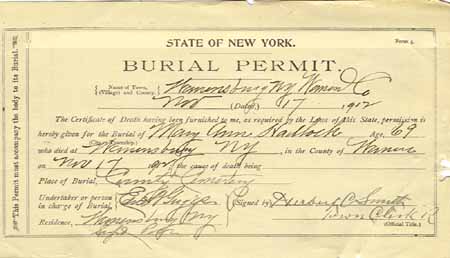 STATE OF NEW YORK.
Form 4.
BURIAL PERMIT.
Name of Town, (Village) and County, Warrensburg NY Warren Co
Nov (Date) 17 1912
The Certificate of Death having been furnished to me, as required by the Laws of this State, permission is
hereby given for the Burial of Mary Ann Age, 69
(Court Township)
who died at Warrensburg NY, in the County of Warren
on Nov 17 the cause of death being
Place of Burial, Cemetery
Undertaker or person
in charge of Burial,
Signed by Herbert C Smith
Residence, Warrensburg NY
Town Clerk
(Official Title.)
This Permit must accompany the body to its Burial.